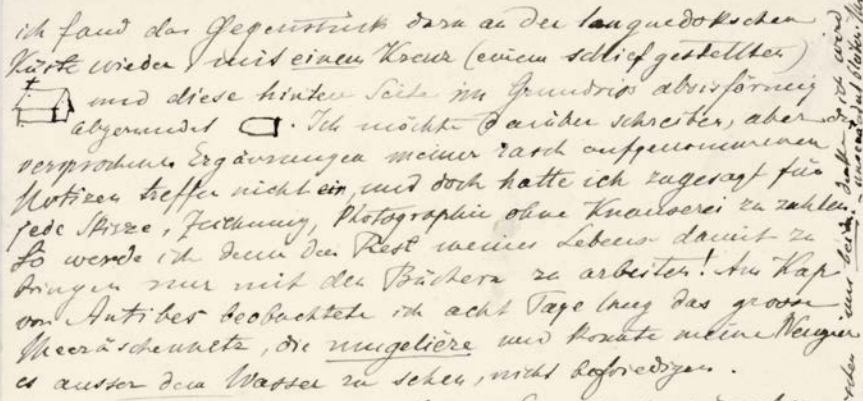 ich fand das Gegenstück dazu an der languedokschen
Küste wieder, mit einem Kreuz (einem schief gestellten)
und diese hintere Seite im Grundriss absisförmig
abgerundet. Ich möchte darüber schreiben, aber die
versprochenen Ergänzungen meiner rasch aufgenommenen
Notizen treffen nicht ein, und doch hatte ich zugesagt für
jede Skizze, Zeichnung, Photographie ohne Knauserei zu zahlen.
So werde ich denn den Rest meines Lebens damit zu
bringen nur mit den Büchern zu arbeiten! Am Kap
von Antibes beobachtete ich acht Tage lang das grosse
Meeräschennetz, die mugelière und konnte meine Neugier
es ausser dem Wasser zu sehen, nicht befriedigen.